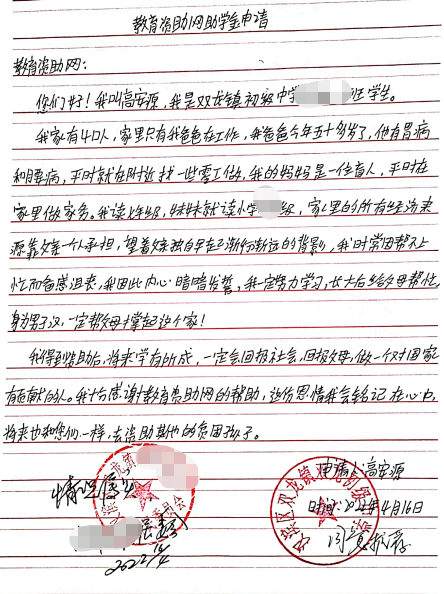 教育资助网助学金申请
教育资助网：
您们好！我叫高安源，我是双龙镇初级中学 班学生。
我家有4口人，家里只有我爸爸在工作，我爸爸今年五十多岁了，他有胃病
和腰病，平时就在附近找一些零工做，我的妈妈是一位盲人，平时在
家里做家务。我读七年级，妹妹就读小学 级，家里的所有经济来
源靠父亲一个人承担，望着父亲独自早在已渐行渐远的背影，我时常因帮不上
忙而备感沮丧，我因此内心暗暗发誓，我一定努力学习，长大后给父母帮忙，
身为男子汉，一定帮父母撑起这个家！
我得到资助后，将来学有所成，一定会回报社会，回报父母，做一个对国家
有贡献的人。我十分感谢教育资助网的帮助，这份恩情我会铭记在心中，
将来也和您们一样，去资助其他的贫困孩子。
情况属实
申请人：高安源
时间：2022年4月16日
同意
2022
双龙镇
区双龙镇双龙初级